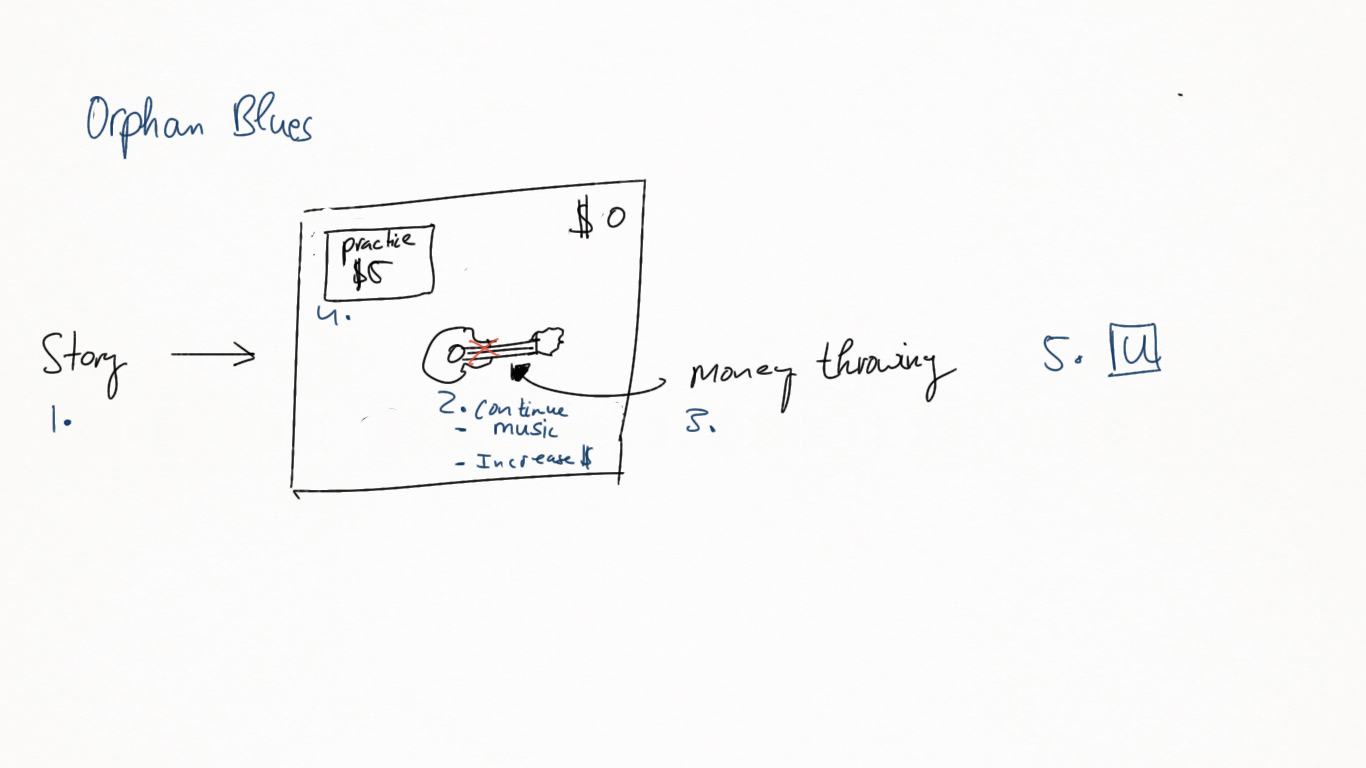 Orphan Blues
$ 0
practice
$5
4.
Story
1.
2. Continue
- music
- Increase $
money throwing
3.
5. U